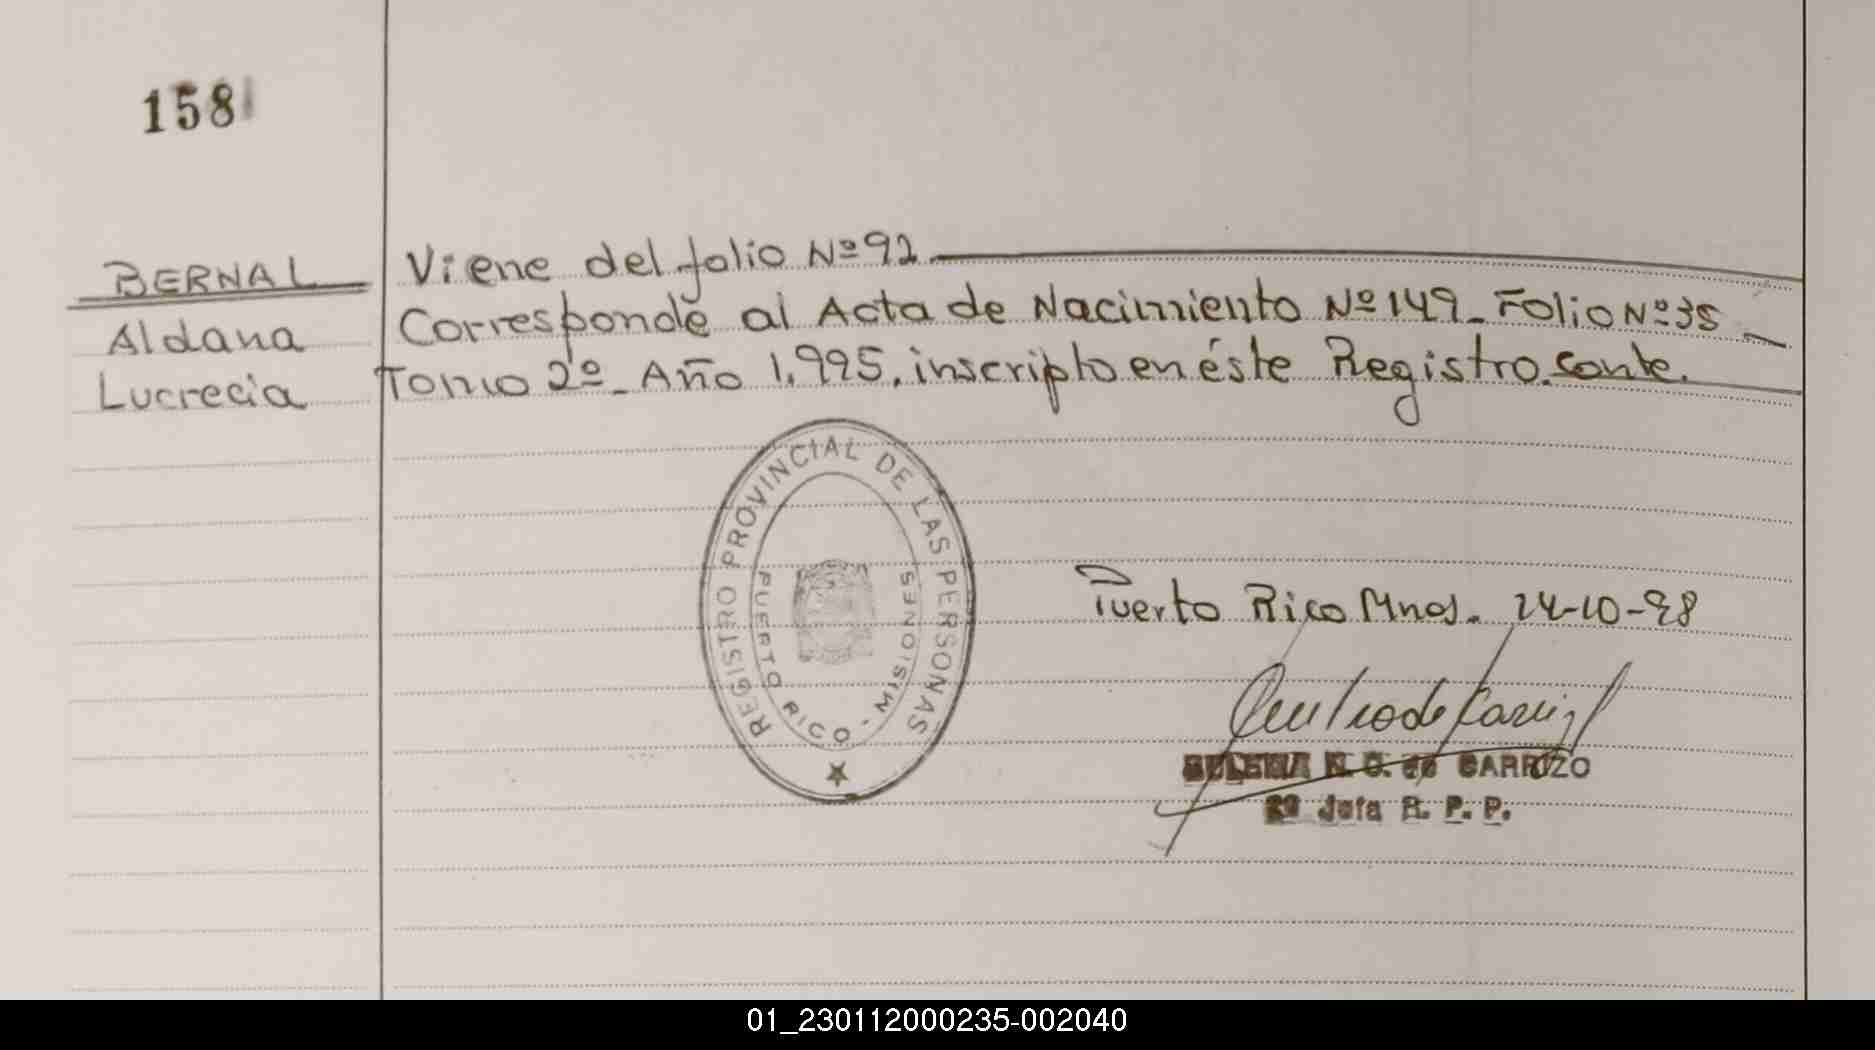 158
BERNAL
Aldana
Lucrecia
Viene del folio Nº 92.
Corresponde al Acta de Nacimiento Nº 149_ Folio Nº 35
Tomo 2º_ Año 1.995. inscripto en éste Registro. Conte.
REGISTRO PROVINCIAL DE LAS PERSONAS
PUERTO RICO - MISIONES
Puerto Rico Mnes. 24-10-98
de CARRIZO
2º Jefa R. P. P.
01_230112000235-002040